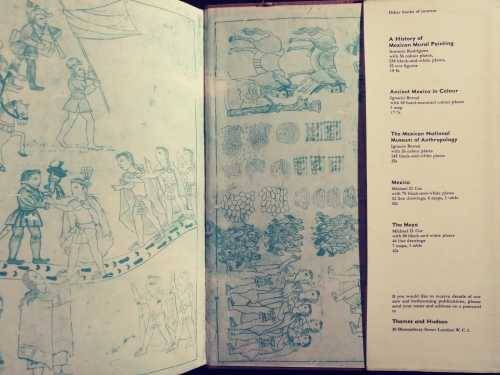 Other books of interest
A History of
Mexican Mural Painting
Antonio Rodríguez
with 56 colour plates,
black-and-white plates,
line figures
Ancient Mexico in Colour
Ignacio Bernal
with hand-mounted colour plates
1 map
The Mexican National
Museum of Anthropology
Ignacio Bernal
with colour plates
black-and-white plates
Mexico
Michael D. Coe
with 76 black-and-white plates
line drawings, maps, 1 table
The Maya
Michael D. Coe
with black-and-white plates
44 line drawings
7 maps, 1 table
If you would like to receive details of our
new and forthcoming publications, please
send your name and address on a postcard
to
Thames and Hudson
30 Bloomsbury Street London W.C.1.